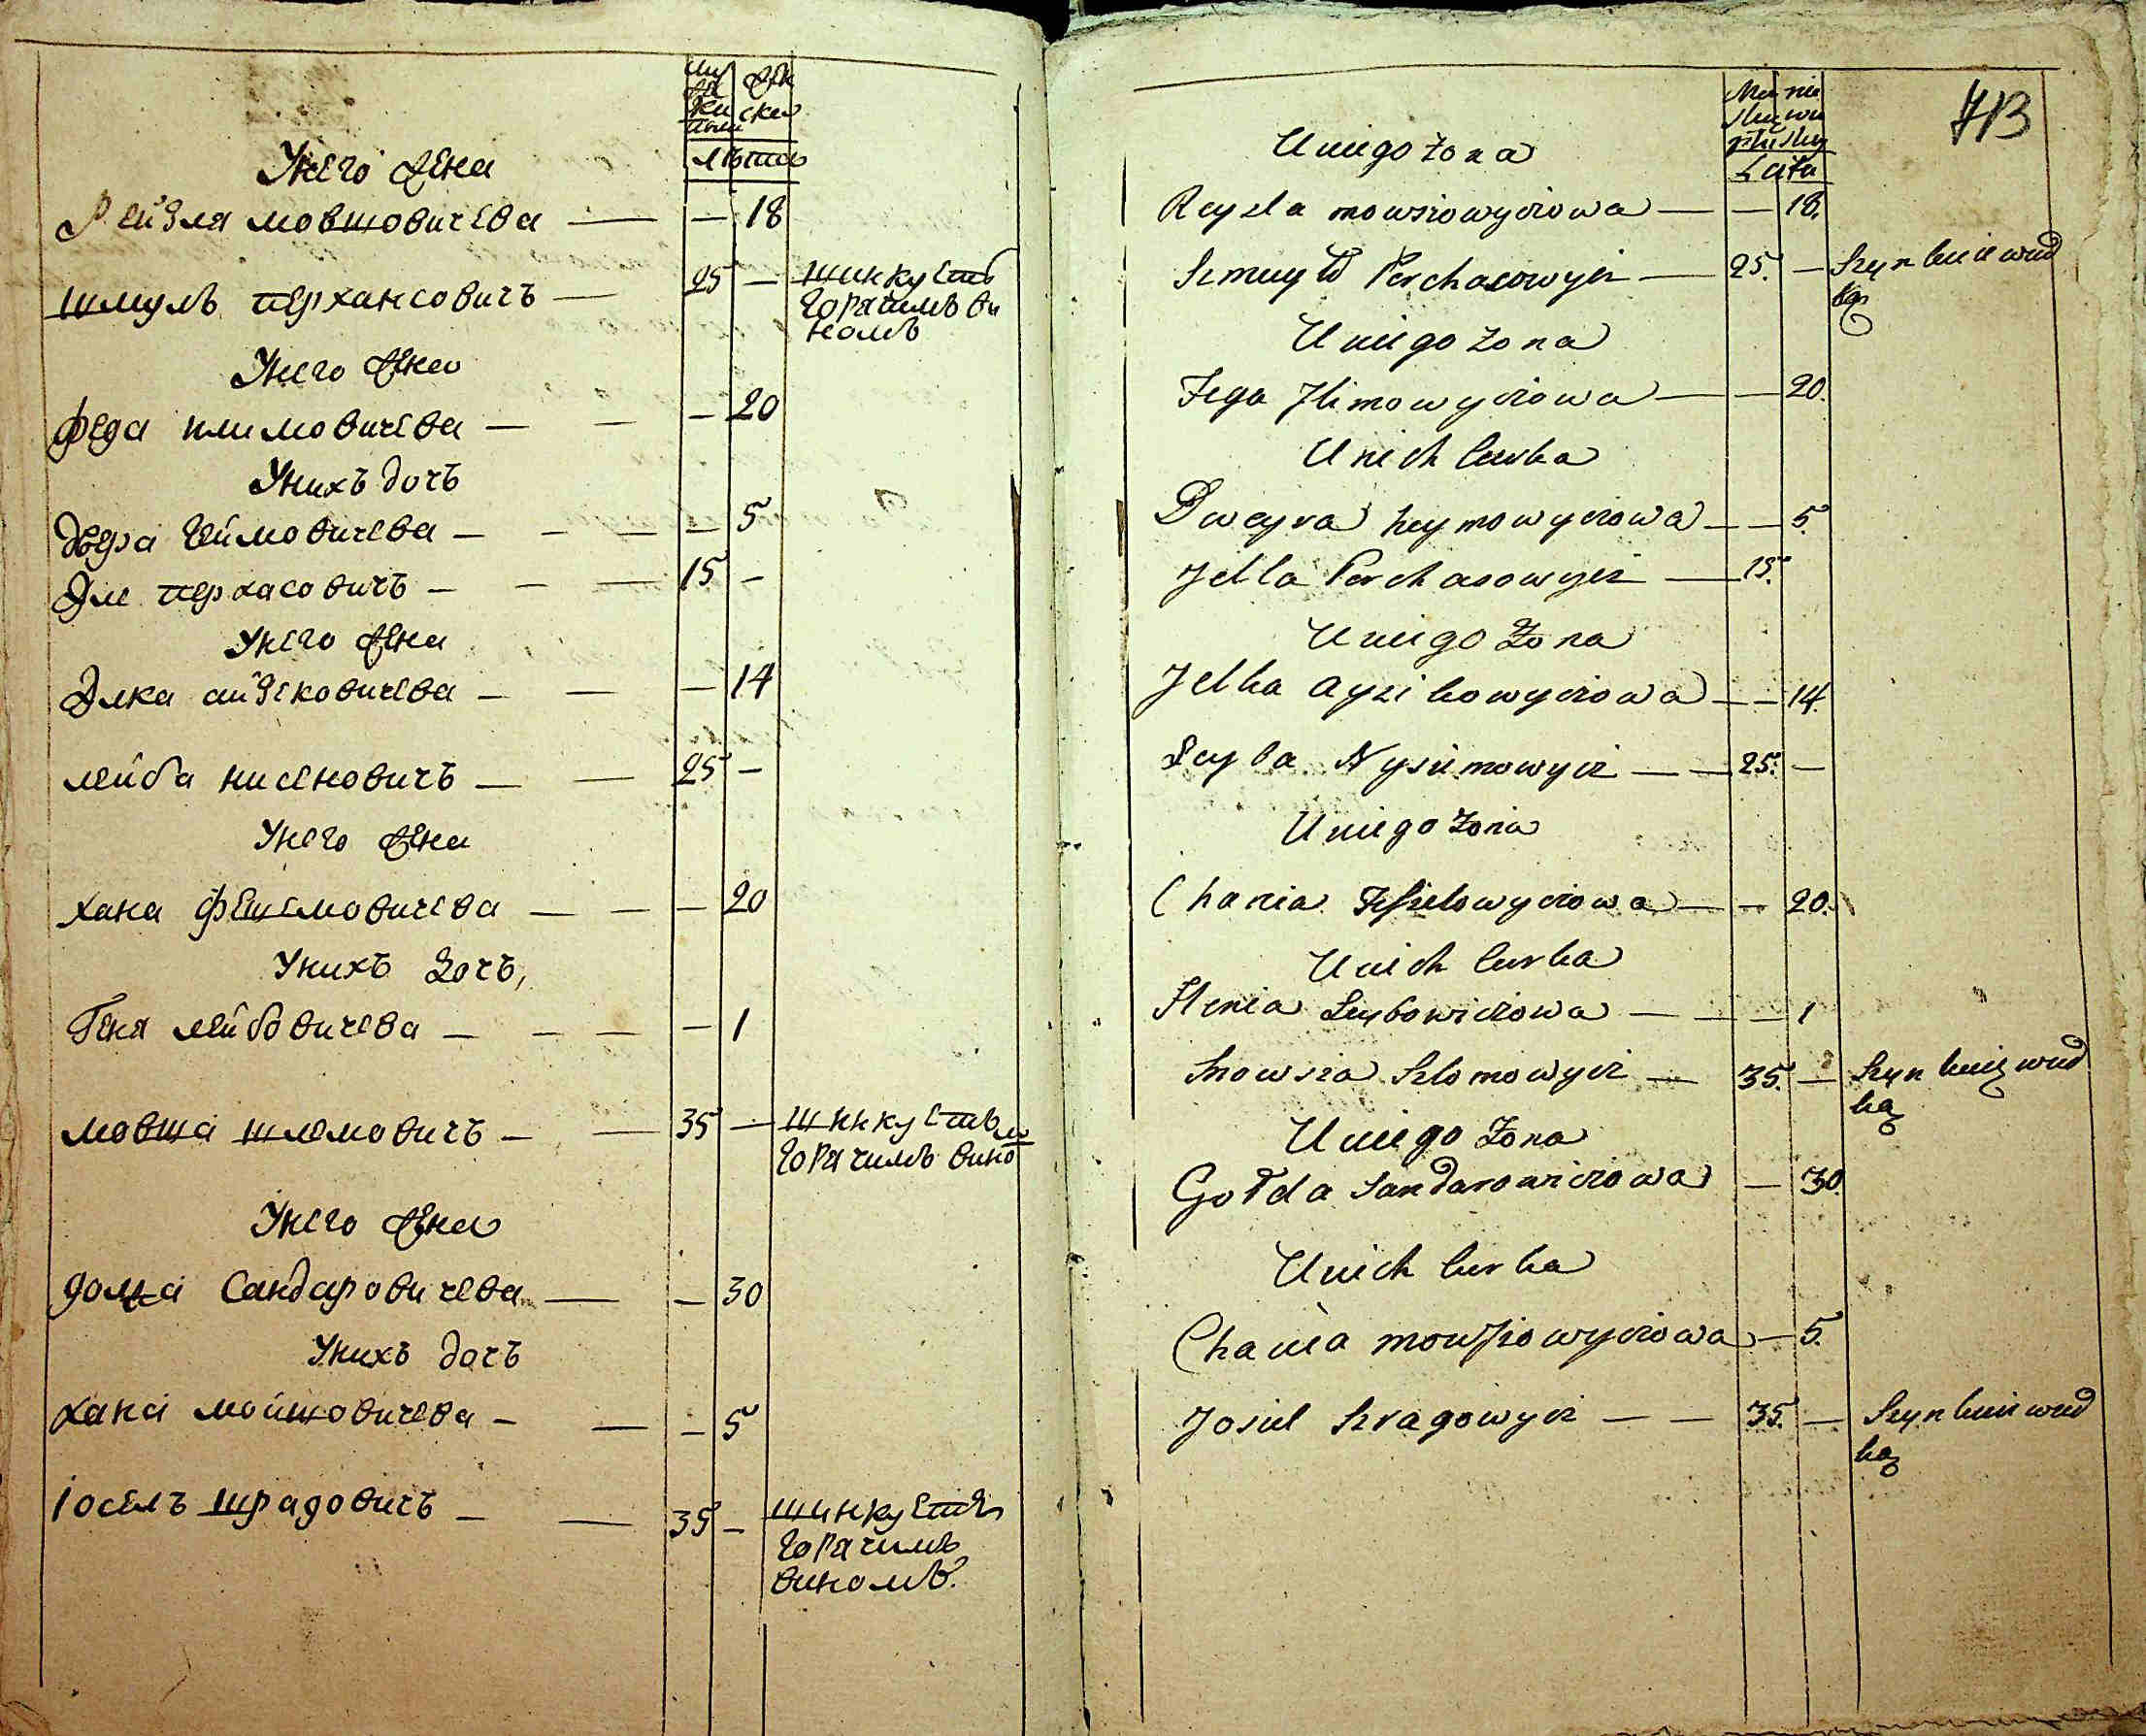 женска
лѣта
Унего жена
Рейзля мовшовичева — — 18
шмуль перхансовичъ — 25 — шинкуетъ
горачимъ ви
номъ
Унего жена
фега илимовичева — — — 20
Унихъ дочъ
двера геймовичева — — — — 5
Эле перхасовичъ — — — 15 —
Унего жена
Элка айзековичева — — — 14
лейба нисеновичъ — — 25 —
Унего жена
хана фешелмовичева — — — 20
Унихъ дочъ,
Геня лейбовичева — — — — 1
мовша шлемовичъ — — 35 — шинкуетъ
горачимъ вино
м
Унего жена
голда Сандаровичева — — 30
Унихъ дочъ
хана мойшовичева — — — 5
Іосель шраговичъ — — 35 — шинкуетъ
горачимъ
виномъ.
713
Lata
U niego Zona
Reyzla mowsiowyczowa — — 18.
Szmuyło Perchasowycz — 25. — Szynkuie wud
ką
U niego Zona
Fega Ilimowyczowa — — 20.
U nich Curka
Dweyra heymowyczowa — — 5.
Jella Perchasowycz — 15.
U niego Zona
Jelka Ayzikowyczowa — — 14.
Leyba Nysiemowycz — — 25. —
U niego Zona
Chania Feszelowyczowa — — 20.
U nich Curka
Henia Leybowiczowa — — — 1
Mowsza Szlomowycz — 35. — Szynkuię wud
ką
U niego Zona
Gołda Sandarowiczowa — 30.
U nich Curka
Chania mowsiowyczowa — 5.
Josiel Szragowycz — — 35. — Szynkuie wud
ką